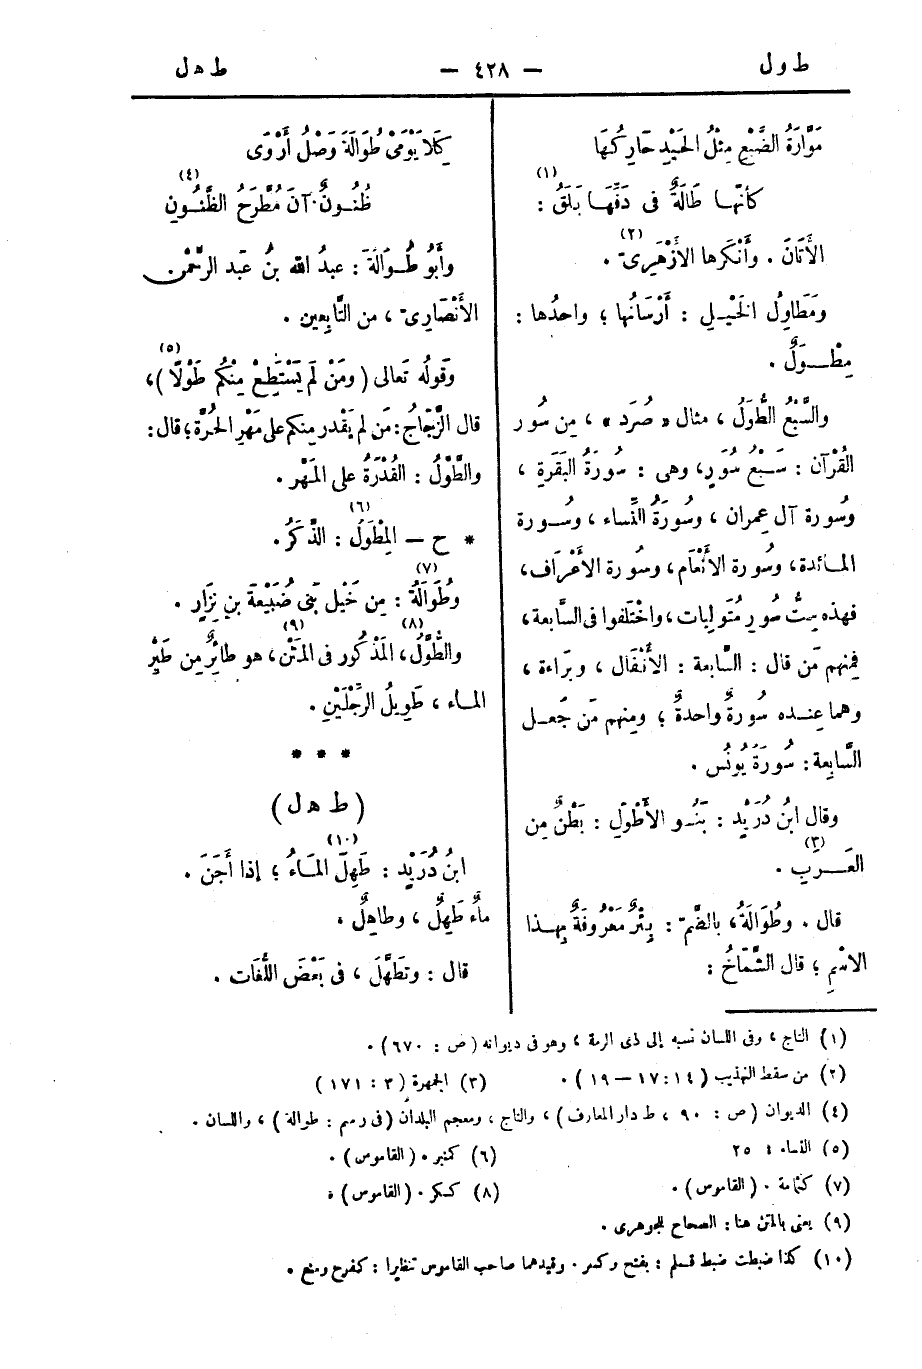 ط ول
— ٤٢٨ —
ط ه‍ ل
مَوَّارَةُ الضَّبْعِ مِثْلُ الحَيْدِ حَارِكُهَا
كأنّها طَالَةٌ فى دَفِّهَا بَلَقُ (١) :
الأَتَانَ . وأَنْكَرها الأَزْهَرِىّ (٢) .
ومَطَاوِلُ الخَيْـلِ : أَرْسَانُها ؛ واحدُها :
مِطْــوَلٌ .
والسَّبْعُ الطُّوَلُ ، مثال « صُرَد » ، مِن سُور
القُرْآن : سَـبْعُ سُوَرٍ، وهى : سُورَةُ البَقَرةِ ،
وسُورة آل عِمران ، وسُورَةُ النِّساء ، وسُـورة
المـائدة، وسُورة الأَنْعَام ، وسُورة الأَعْرَاف،
فهذه سِتُّ سُورٍ مُتَوالِيات، واخْتَلفوا فى السَّابعة،
فمِنهم مَن قال : السَّابعة : الأَنْفَال ، وبَراءة ،
وهما عِنـده سُورةٌ واحدةٌ ؛ ومِنهم مَن جَعـل
السَّابِعة: سُورَةَ يُونُس .
وقال ابنُ دُرَيْد : بَنُـو الأَطْوَلِ : بَطْنٌ مِن
العَــرَبِ (٣) .
قال . وطُوَالَةُ، بالضَّمّ : بِئْرٌ مَعْرُوفَةٌ بهـذا
الاسْمِ ؛ قال الشَّمّاخُ :
كِلَا يَوْمَىْ طُوَالَةَ وَصْلُ أَرْوَى
ظُنُـونٌ آنَ مُطَّرَحُ الظَّنُـونِ (٤)
وأَبُو طُـوَالَةَ : عبدُ الله بنُ عَبد الرحْمٰن
الأَنْصَارِىّ ، من التَّابِعِين .
وقَولُه تَعالى ( ومَنْ لَم يَسْتَطِعْ مِنْكُم طَوْلًا (٥) ) ،
قال الزَّجّاجُ : مَن لم يَقْدر مِنكم على مَهْرِ الحُرَّة ؛ قال :
والطَّوْلُ : القُدْرَةُ على المَهْر .
* ح — المِطْوَلُ (٦) : الذَّكَرُ .
وطُوَالَةُ (٧) : مِن خَيْل بَنِى ضُبَيْعَة بنِ نِزَارٍ .
والطُّوَّلُ (٨)، المَذْكُور فى المَتْن (٩)، هو طائِرٌ مِن طَيْرِ
المـاء ، طَوِيلُ الرِّجْلَيْنِ .
* * *
(ط ه‍ ل)
ابنُ دُرَيْدٍ : طَهِلَ (١٠) المَـاءُ ؛ إذا أَجَنَ .
ماءٌ طَهِلٌ ، وطاهِلٌ .
قال : وتَطَهَّلَ ، فى بَعْضِ اللُّغَات .
(١) التاج ، وفى اللسان نسبه إلى ذى الرمة ، وهو فى ديوانه ( ص : ٦٧٠) .
(٢) من سقط التهذيب (١٤ : ١٧ — ١٩) .
(٣) الجمهرة (٣ : ١٧١)
(٤) الديوان (ص : ٩٠ ، ط دار المعارف) ، والتاج ، ومعجم البلدان (فى رسم : طوالة) ، واللسان .
(٥) النساء : ٢٥
(٦) كمنبر . (القاموس) .
(٧) كثمامة . (القاموس) .
(٨) كسكر . (القاموس) .
(٩) يعنى بالمتن هنا : الصحاح للجوهرى .
(١٠) كذا ضبطت ضبط قـلم : بفتح وكسر . وقيدهما صاحب القاموس تنظيرا : كفرح ومنع .